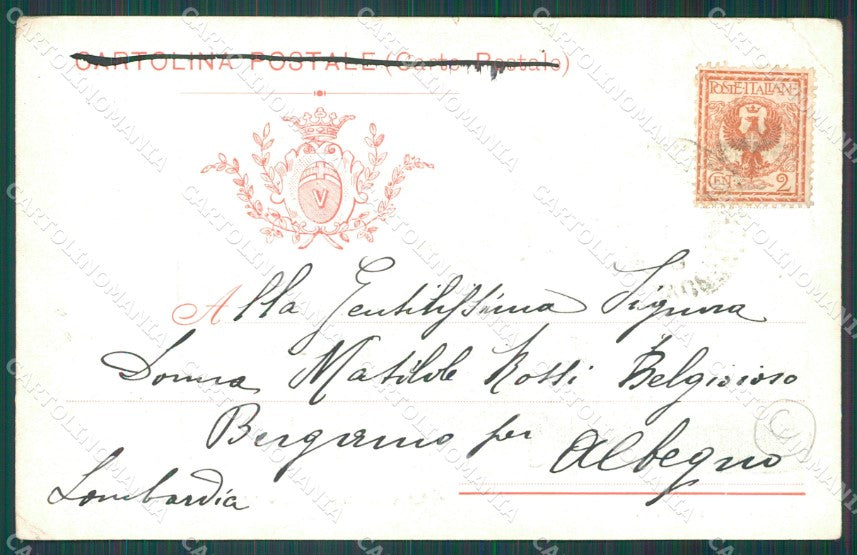 CARTOLINA POSTALE (Carte Postale)
POSTE·ITALIANE
CT 2
V
Alla Gentilissima Signora
Donna Matilde Rossi Belgioioso
Bergamo per Albegno
Lombardia
C
CARTOLINOMANIA